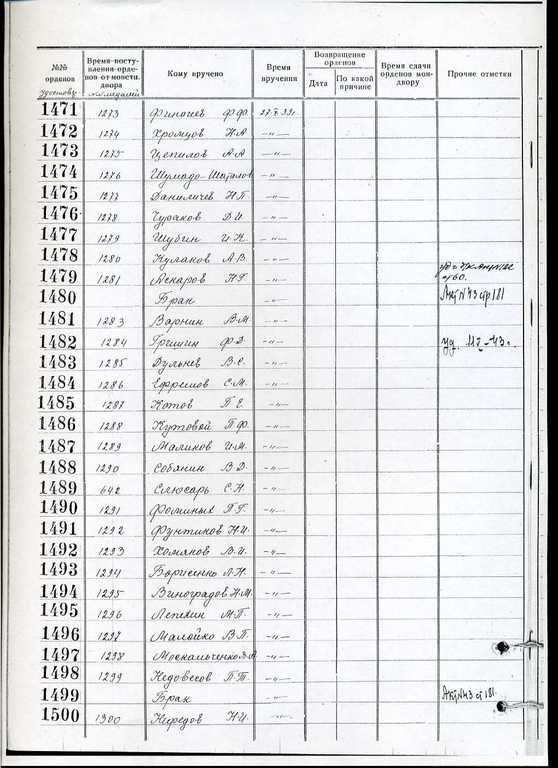 №№ орденов
удостов.
Время посту-
пления орде-
нов от монетн.
двора
и медалей
Кому вручено
Время
вручения
Возвращение
орденов
Дата
По какой
причине
Время сдачи
орденов мон-
двору
Прочие отметки
1471 1273 Финогеев Ф.Ф. 27.V.39г.
1472 1274 Хромцов Н.А -"-
1473 1275 Цепилов А.А -"-
1474 1276 Шумадо-Шаталов -"-
1475 1277 Даниличев Н.П -"-
1476 1278 Чураков Д.И. -"-
1477 1279 Шубин И.К. -"-
1478 1280 Кулаков А.В. -"-
1479 1281 Аскаров Н.Г. -"-
1480 Брак -"- Акт N43 стр 181
1481 1283 Варнин В.М -"-
1482 1284 Гришин Ф.Д. -"- уд.
1483 1285 Дульнев В.С. -"-
1484 1286 Ефремов С.М. -"-
1485 1287 Котов П.Е. -"-
1486 1288 Кутовой П.Ф. -"-
1487 1289 Маликов И.М. -"-
1488 1290 Собянин В.Д. -"-
1489 642 Слюсарь С.Н. -"-
1490 1291 Фоминых П.Г. -"-
1491 1292 Фунтиков Н.И. -"-
1492 1293 Хомянов В.И. -"-
1493 1294 Борисенко Л.Н. -"-
1494 1295 Виноградов Н.М. -"-
1495 1296 Лепехин М.П. -"-
1496 1297 Малойко В.П. -"-
1497 1298 Москальченко З.А -"-
1498 1299 Недовесов П.П. -"-
1499 Брак -"- Акт N43 ст 181.
1500 1300 Нередов Н.И. -"-